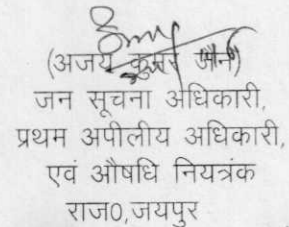 (अजय कुमार जैन)
जन सूचना अधिकारी,
प्रथम अपीलीय अधिकारी,
एवं औषधि नियत्रंक
राज0,जयपुर